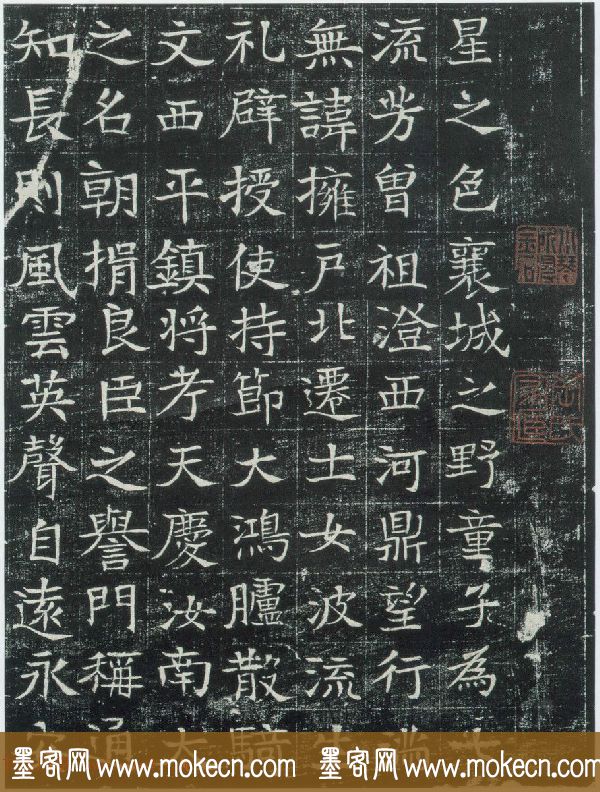 星之色襄城之野童子為
流芳曾祖澄西河鼎望行滿
無諱擁戶北遷士女波流
礼辟授使持節大鴻臚散騎
文西平鎮将考天慶汝南太
之名朝揖良臣之譽門稱通
知長則風雲英聲自遠永
墨客网 www.mokecn.com 墨客网 www.mokecn.com